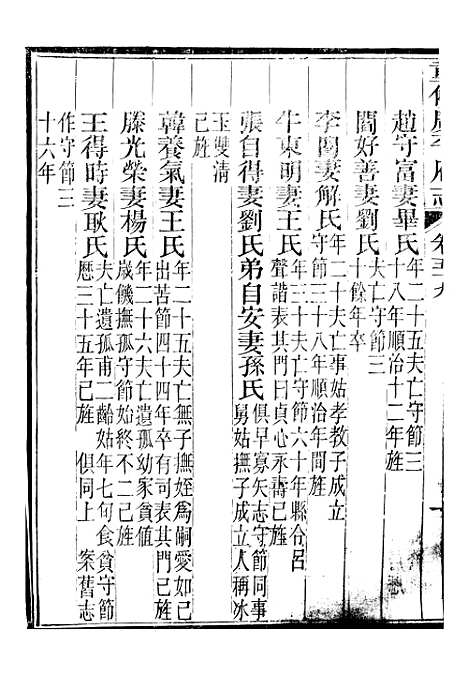 重修廣平府志 卷五十九
趙守富妻畢氏 年二十五夫亡守節三
十八年順治十二年旌
閻好善妻劉氏 夫亡守節三
十餘年卒
李陽妻解氏 年二十夫亡事姑孝教子成立
守節三十八年順治年間旌
牛東明妻王氏 年三十夫亡守節六十年縣令呂
聲諧表其門曰貞心永壽已旌
張自得妻劉氏弟自安妻孫氏 俱早寡矢志守節同事
舅姑撫子成立人稱冰
玉雙淸
已旌
韓養氣妻王氏 年二十五夫亡無子撫姪為嗣愛如己
出苦節四十四年卒有司表其門已旌
滕光榮妻楊氏 年二十六夫亡遺孤幼家貧值
歲饑撫孤守節始終不二已旌
王得時妻耿氏 夫亡遺孤甫二齡姑年七旬食貧守節
歷三十五年已旌 俱同上 案舊志
作守節三
十六年